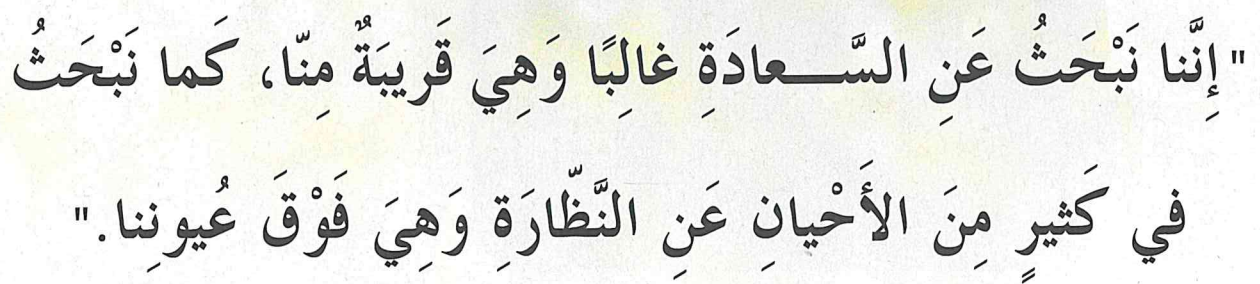 "إِنَّنا نَبْحَثُ عَنِ السَّـــعادَةِ غالِبًا وَهِيَ قَريبَةٌ مِنّا، كَما نَبْحَثُ
في كَثيرٍ مِنَ الأَحْيانِ عَنِ النَّظّارَةِ وَهِيَ فَوْقَ عُيونِنا."